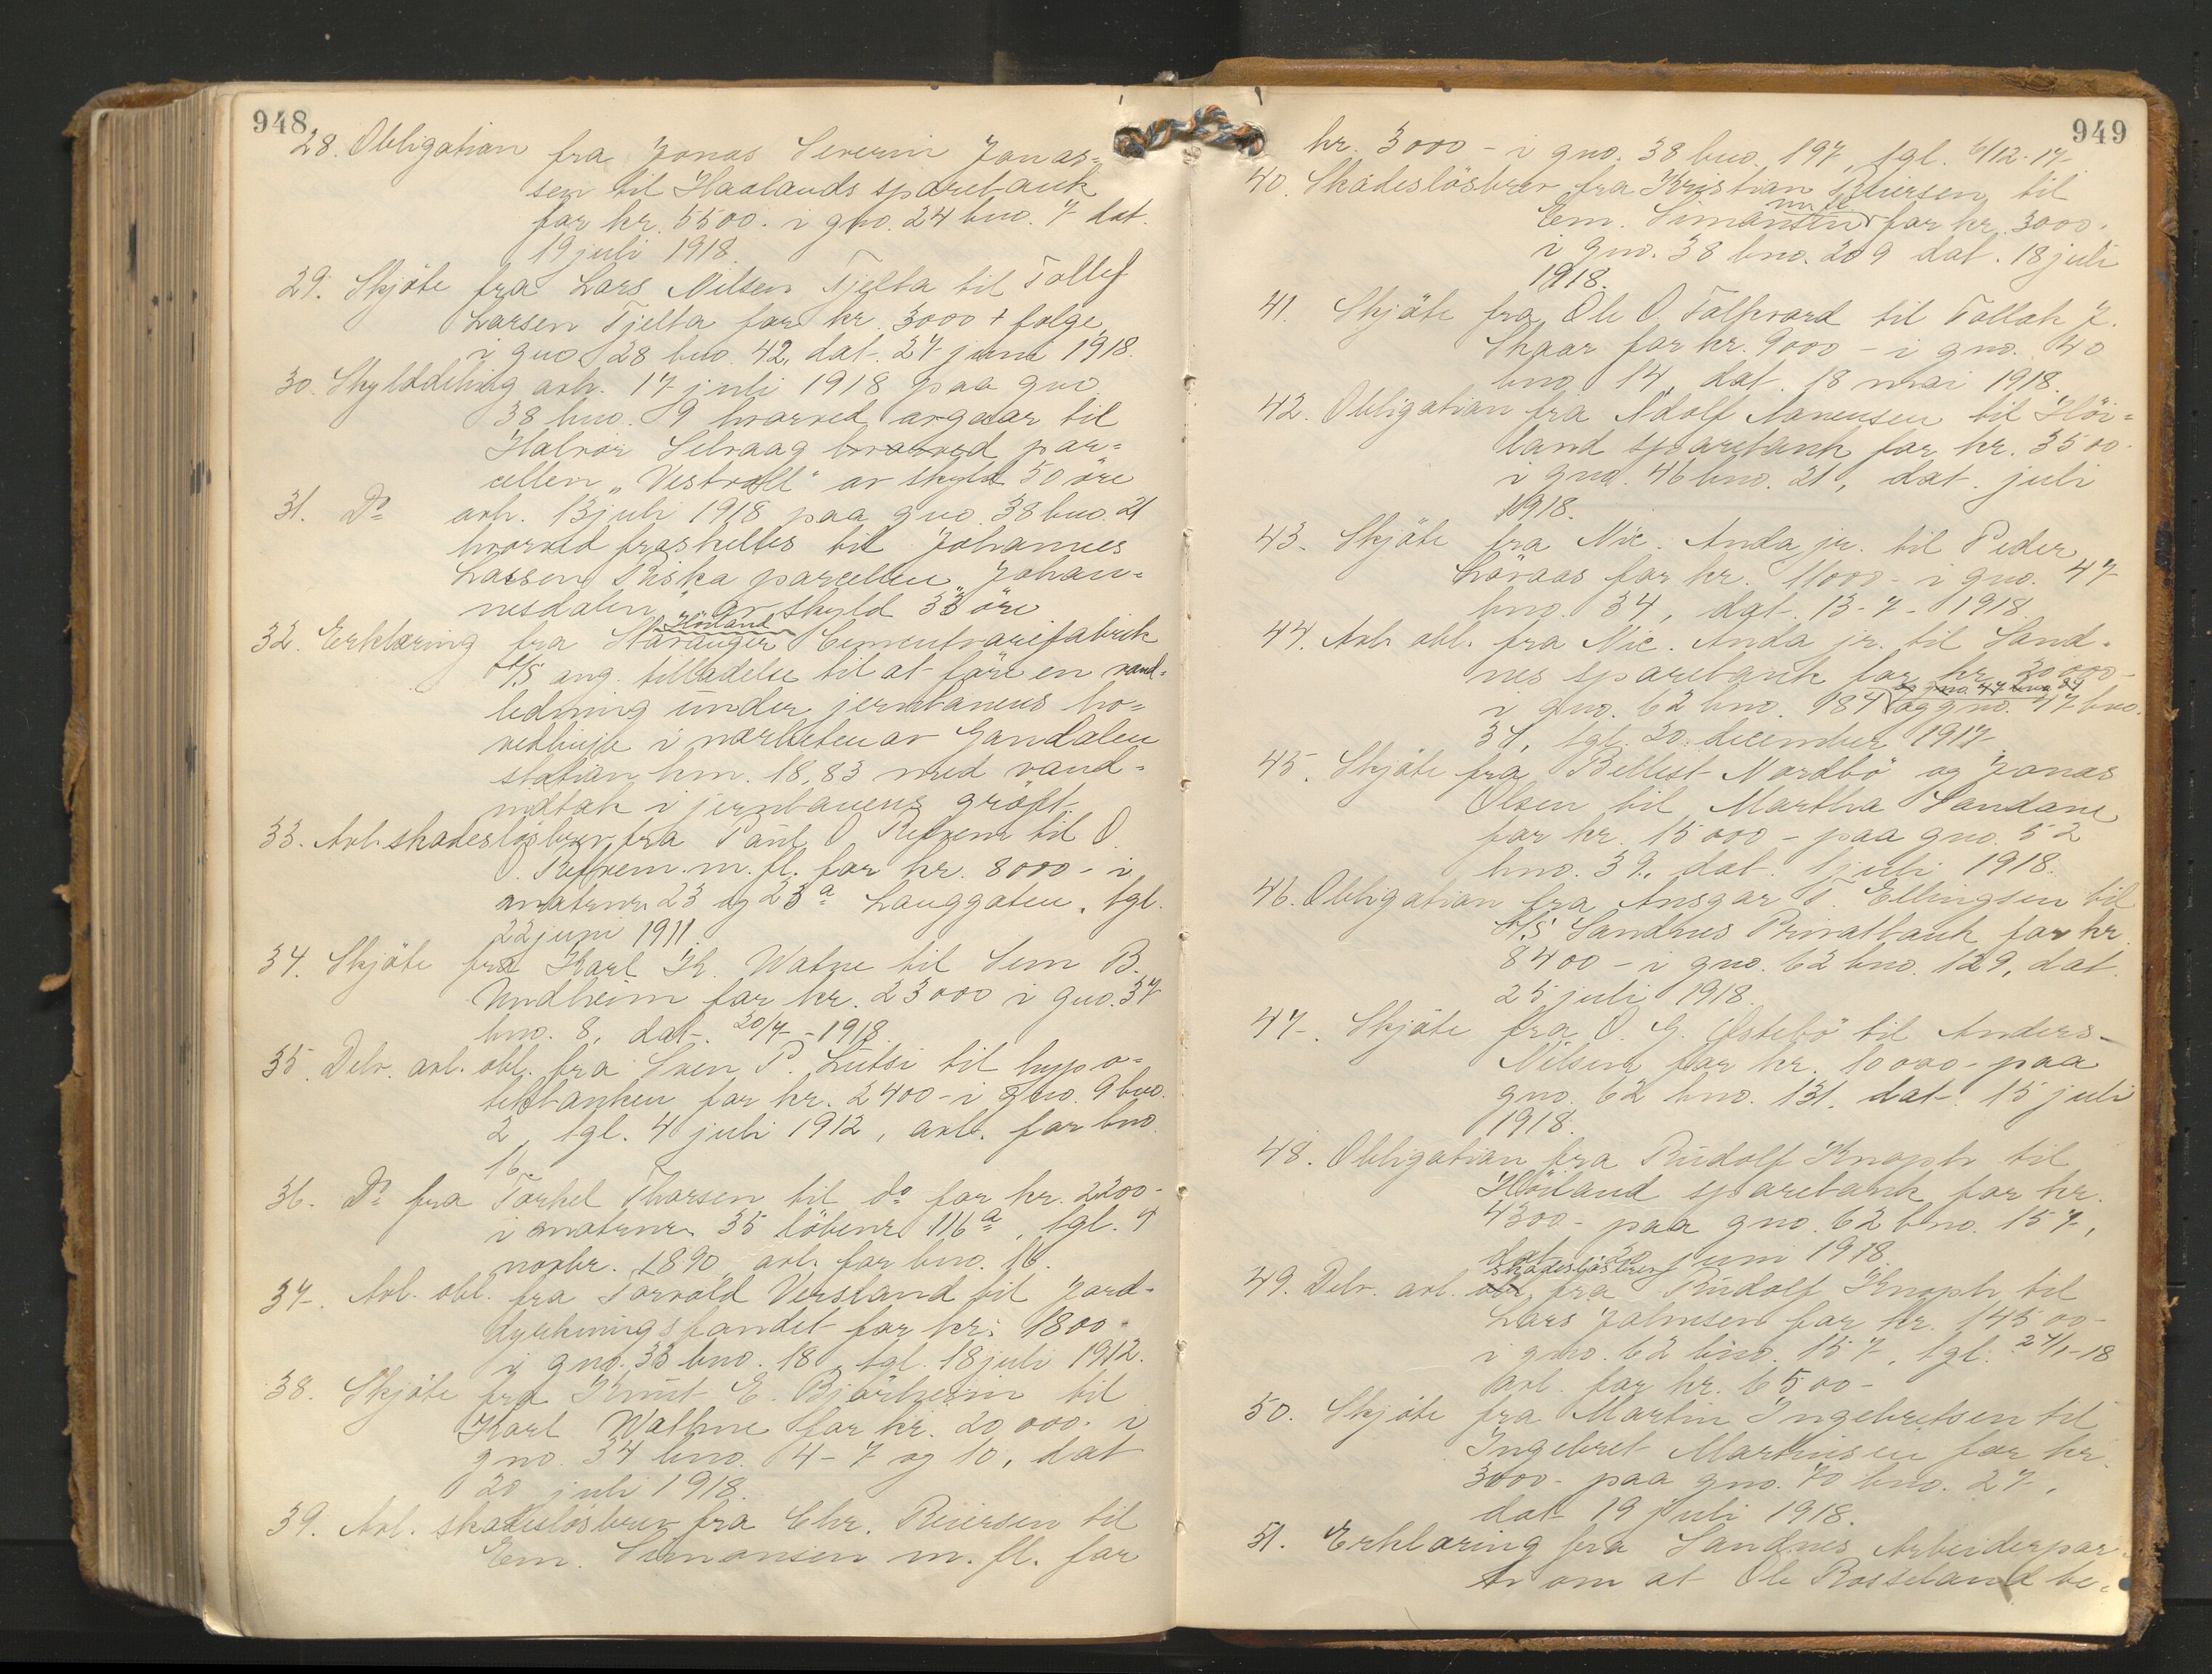 948
28. Obligation fra Jonas Severin Jonas=
sen til Haalands sparebank
for kr. 5500. i gno. 24 bno. 7 dat.
19 juli 1918.
29. Skjöte fra Lars Nilsen Tjelta til Tollef
Larsen Tjelta for kr. 3000 + folge
i gno 28 bno. 42, dat. 27 juni 1918.
30. Skylddeling avh. 17 juli 1918 paa gno
38 bno. 9 hvorved avgaar til
Halvor Selvaag hvorved par=
cellen „Vestvoll" av skyld 50 öre
31. Do avh. 13 juli 1918 paa gno. 38 bno. 21
hvorved fraskilles til Johannes
Lassen Riska parcellen „Johan=
nesdalen" av skyld 33 öre
32. Erklæring fra Stavanger Höiland Cementvarefabrik
A/S ang. tilladelse til at före en vand=
ledning under jernbanens ho=
vedlinje i nærheten av Gandalen
station km. 18,83 med vand=
indtak i jernbanens gröft.
33. Avl. skadeslösbrev fra Paul O. Refvem til O.
O. Refvem m. fl. for kr. 8000 - i
matrnr 23 og 23a Langgaten, tgl.
22 juni 1911
34. Skjöte fra Karl K. Watne til Sem B.
Undheim for kr. 23000 i gno. 37
bno. 8, dat. 20/7 - 1918.
35. Delv. avl. obl. fra Sven P. Lutsi til hypo=
tekbanken for kr. 2400 - i gno. 9 bno.
2, tgl. 4 juli 1912, avl. for bno.
16.
36. Do fra Torkel Thorsen til do for kr. 2200 -
i matrnr. 35 löbenr 116a, tgl. 4
novbr. 1890 avl. for bno. 16.
37. Avl. obl. fra Torvald Versland til Jord=
dyrkningsfondet for kr. 1800 -
i gno. 33 bno. 18, tgl. 18 juli 1912.
38. Skjöte fra Knut E. Bjorheim til
Karl Wathne for kr. 20,000. i
gno. 34 bno. 4 - 7 og 10, dat
20 juli 1918.
39. Avl. skadeslösbrev fra Chr. Reiersen til
Em. Simonsen m. fl. for
949
kr. 3000 - i gno. 38 bno. 197, tgl. 6/12-17
40. Skadeslösbrev fra Kristian Reiersen til
Em. Simonsen m. fl. for kr. 3000.
i gno. 38 bno. 209 dat. 18 juli
1918.
41. Skjöte fra Ole O. Folkvord til Tollak J.
Skaar for kr. 9000 - i gno. 40
bno. 14, dat. 18 mai 1918.
42. Obligation fra Adolf Nanensen til Höi=
land sparebank for kr. 3500 -
i gno. 46 bno. 21, dat. juli
1918.
43. Skjöte fra Nic. Anda jr. til Peder
Löraas for kr. 11000 - i gno. 47
bno. 34, dat. 13 - 7 - 1918
44. Avl. obl. fra Nic. Anda jr. til Sand=
nes sparebank for kr 30000 -
i gno. 62 bno. 184 og gno. 47 bno. 34 og gno. 47 bno.
34, tgl. 20. december 1917
45. Skjöte fra Bellest Nordbö og Jonas
Olsen til Martha Sandane
for kr. 15000 - paa gno. 52
bno. 39., dat. 1 juli 1918.
46. Obligation fra Ansgar T. Ellingsen til
A/S Sandnes Privatbank for kr
8400 - i gno. 62 bno. 129, dat.
25 juli 1918.
47. Skjöte fra O. G. Östebö til Anders
Nilsen for kr. 10000 - paa
gno. 62 bno. 131. dat. 15 juli
1918.
48. Obligation fra Rudolf Knoph til
Höiland sparebank for kr.
4300 - paa gno. 62 bno. 157,
dat. 20 juni 1918
49. Delv. avl. obl skadeslösbrev fra Rudolf Knoph til
Lars Johnsen for kr. 14500 -
i gno. 62 bno. 157, tgl. 27/1-18
avl. for kr. 6500 -
50. Skjöte fra Martin Ingebretsen til
Ingebret Martinsen for kr.
3000 - paa gno. 70 bno. 27,
dat 19 juli 1918.
51. Erklæring fra Sandnes Arbeiderpar=
ti om at Ole Rosseland be=